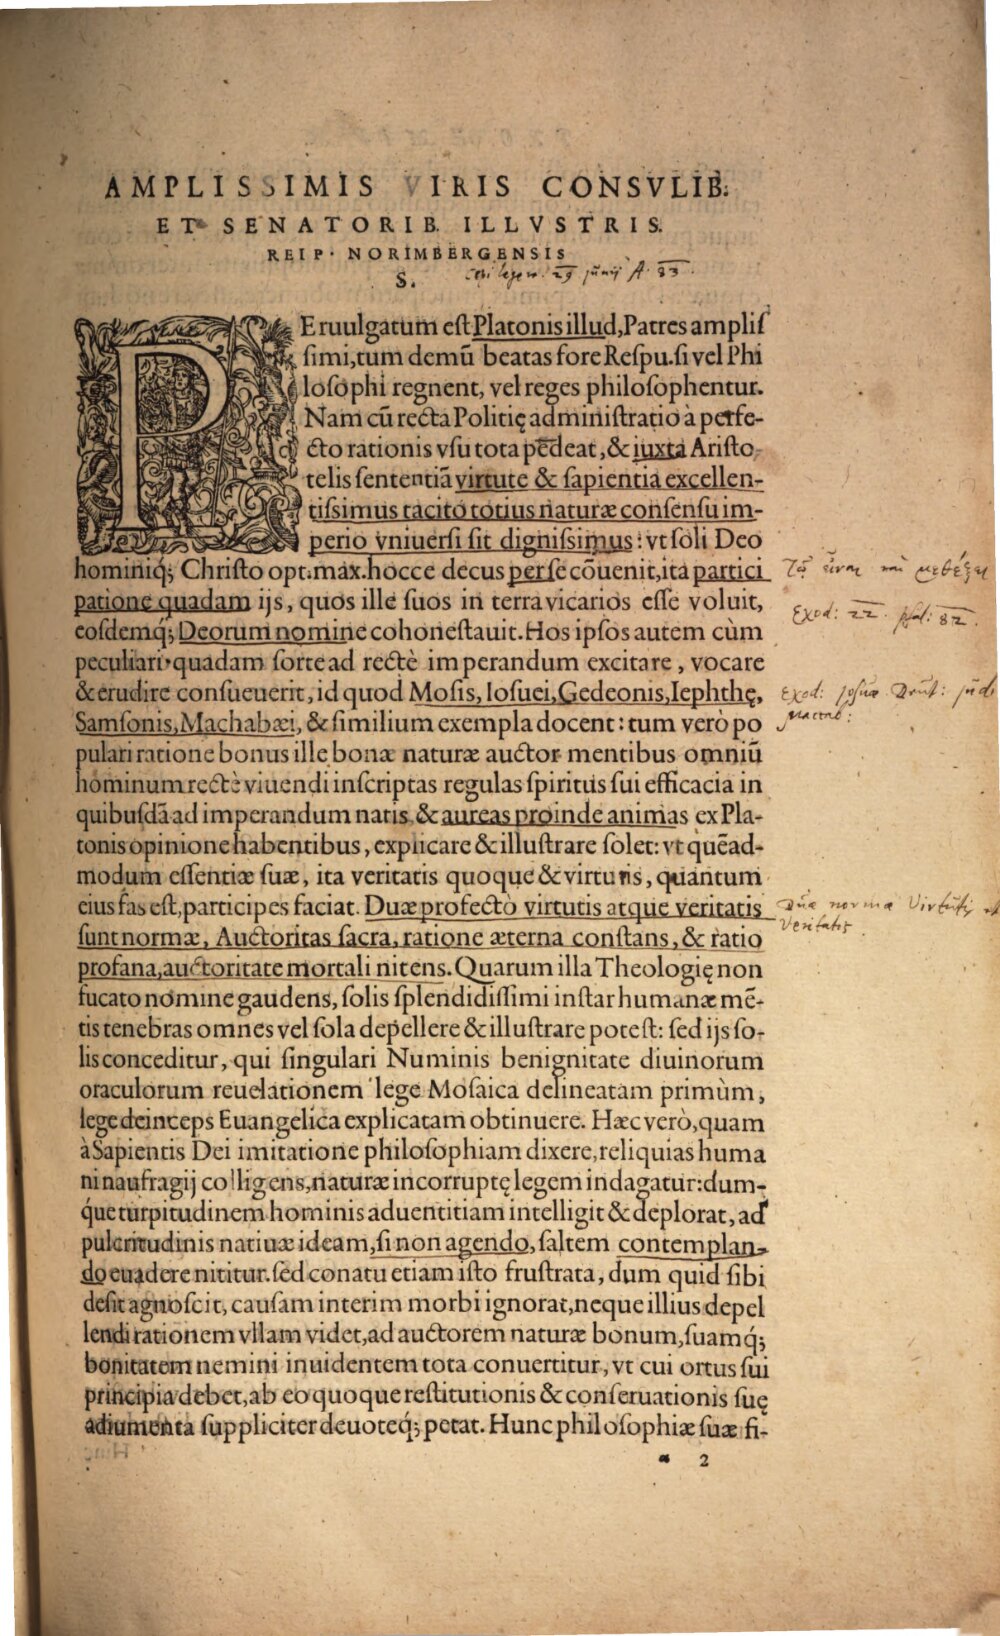 AMPLISSIMIS VIRIS CONSVLIB.
ET SENATORIB. ILLVSTRIS.
REIP. NORIMBERGENSIS
S.
PEruulgatum est Platonis illud, Patres amplis
simi, tum demũ beatas fore Respu. si vel Phi
losophi regnent, vel reges philosophentur.
Nam cũ recta Politię administratio à perfe-
cto rationis vsu tota pẽdeat, & iuxta Aristo
telis sententiã virtute & sapientia excellen-
tissimus tacito totius naturæ consensu im-
perio vniuersi sit dignissimus: vt soli Deo
hominiq́; Christo opt. max. hocce decus per se cõuenit, ita partici
patione quadam ijs, quos ille suos in terra vicarios esse voluit,
eosdemq́; Deorum nomine cohonestauit. Hos ipsos autem cùm
peculiari quadam sorte ad rectè imperandum excitare, vocare
& erudire consueuerit, id quod Mosis, Iosuei, Gedeonis, Iephthę,
Samsonis, Machabæi, & similium exempla docent: tum verò po
pulari ratione bonus ille bonæ naturæ auctor mentibus omniũ
hominum rectè viuendi inscriptas regulas spiritus sui efficacia in
quibusdã ad imperandum natis & aureas proinde animas ex Pla-
tonis opinione habentibus, explicare & illustrare solet: vt quẽad-
modum essentiæ suæ, ita veritatis quoque & virtutis, quantum
eius fas est, participes faciat. Duæ profectò virtutis atque veritatis
sunt normæ, Auctoritas sacra, ratione æterna constans, & ratio
profana, auctoritate mortali nitens. Quarum illa Theologię non
fucato nomine gaudens, solis splendidissimi instar humanæ mẽ-
tis tenebras omnes vel sola depellere & illustrare potest: sed ijs so-
lis conceditur, qui singulari Numinis benignitate diuinorum
oraculorum reuelationem lege Mosaica delineatam primùm,
lege deinceps Euangelica explicatam obtinuere. Hæc verò, quam
à Sapientis Dei imitatione philosophiam dixere, reliquias huma
ni naufragij colligens, naturæ incorruptę legem indagatur: dum-
q́ue turpitudinem hominis aduentitiam intelligit & deplorat, ad
pulcritudinis natiuæ ideam, si non agendo, saltem contemplan-
do euadere nititur. sed conatu etiam isto frustrata, dum quid sibi
desit agnoscit, causam interim morbi ignorat, neque illius depel
lendi rationem vllam videt, ad auctorem naturæ bonum, suamq́;
bonitatem nemini inuidentem tota conuertitur, vt cui ortus sui
principia debet, ab eo quoque restitutionis & conseruationis suę
adiumenta suppliciter deuoteq́; petat. Hunc philosophiæ suæ fi-
2
Exod: 22. psal: 82.
Exod: Josuæ
Duæ normæ Virtutis et
Veritatis